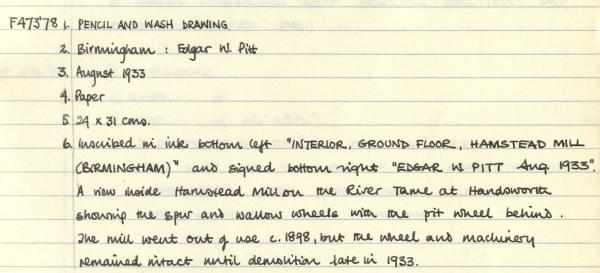 F473'78 1. PENCIL AND WASH DRAWING
2. Birmingham : Edgar W. Pitt
3. August 1933
4. Paper
5. 24 x 31 cms.
6. Inscribed in ink bottom left "INTERIOR, GROUND FLOOR, HAMSTEAD MILL
(BIRMINGHAM)" and signed bottom right "EDGAR W PITT Aug 1933".
A view inside Hamstead Mill on the River Tame at Handsworth
showing the spur and wallow wheels with the pit wheel behind.
The mill went out of use c. 1898, but the wheel and machinery
remained intact until demolition late in 1933.